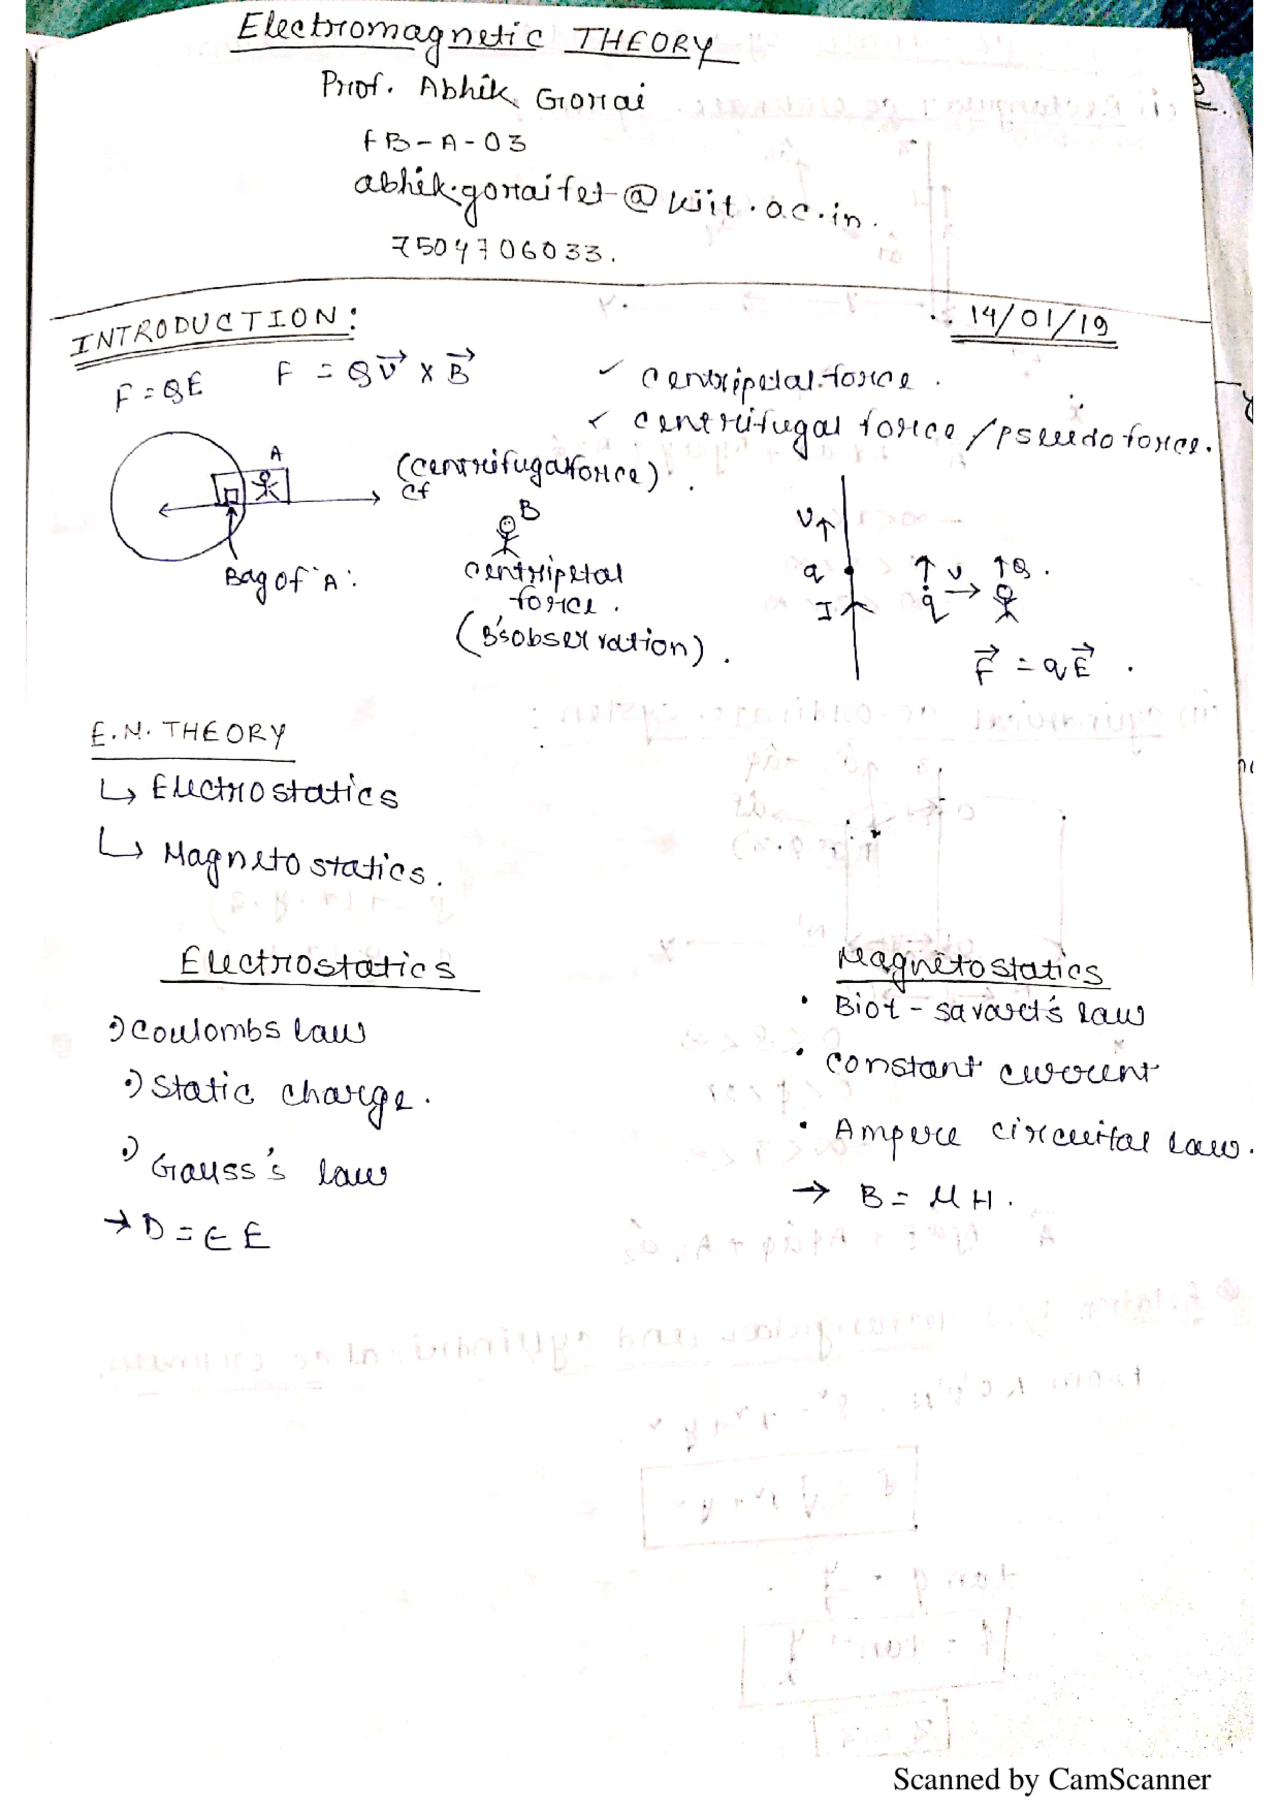 Electromagnetic THEORY
Prof. Abhik Gorai
FB-A-03
abhik.goraifet@kiit.ac.in.
7504706033.
INTRODUCTION:
14/01/19
F = QE
F = Q V × B
✓ centripetal force.
✓ centrifugal force / pseudo force.
A
(centrifugal force).
Cf
Bag of 'A'.
B
centripetal
force.
(B's observation).
V↑
q
I
↑ v → ↑Q.
q
F = qE.
E.M. THEORY
↳ Electrostatics
↳ Magnetostatics.
Electrostatics
•) Coulombs law
•) Static charge.
•) Gauss's law
→ D = ∈ E
Magnetostatics
• Biot - savart's law
• constant current
• Ampere circuital law.
→ B = μ H.
Scanned by CamScanner